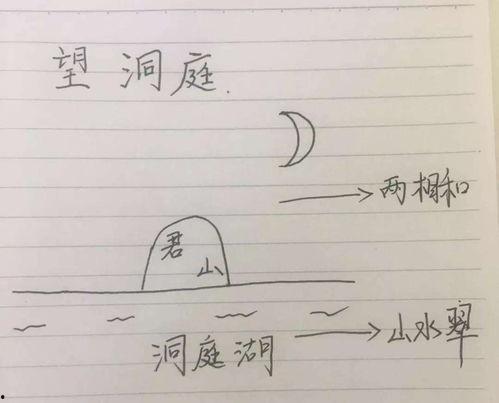 望洞庭.
两相和
君山
洞庭湖
山水翠